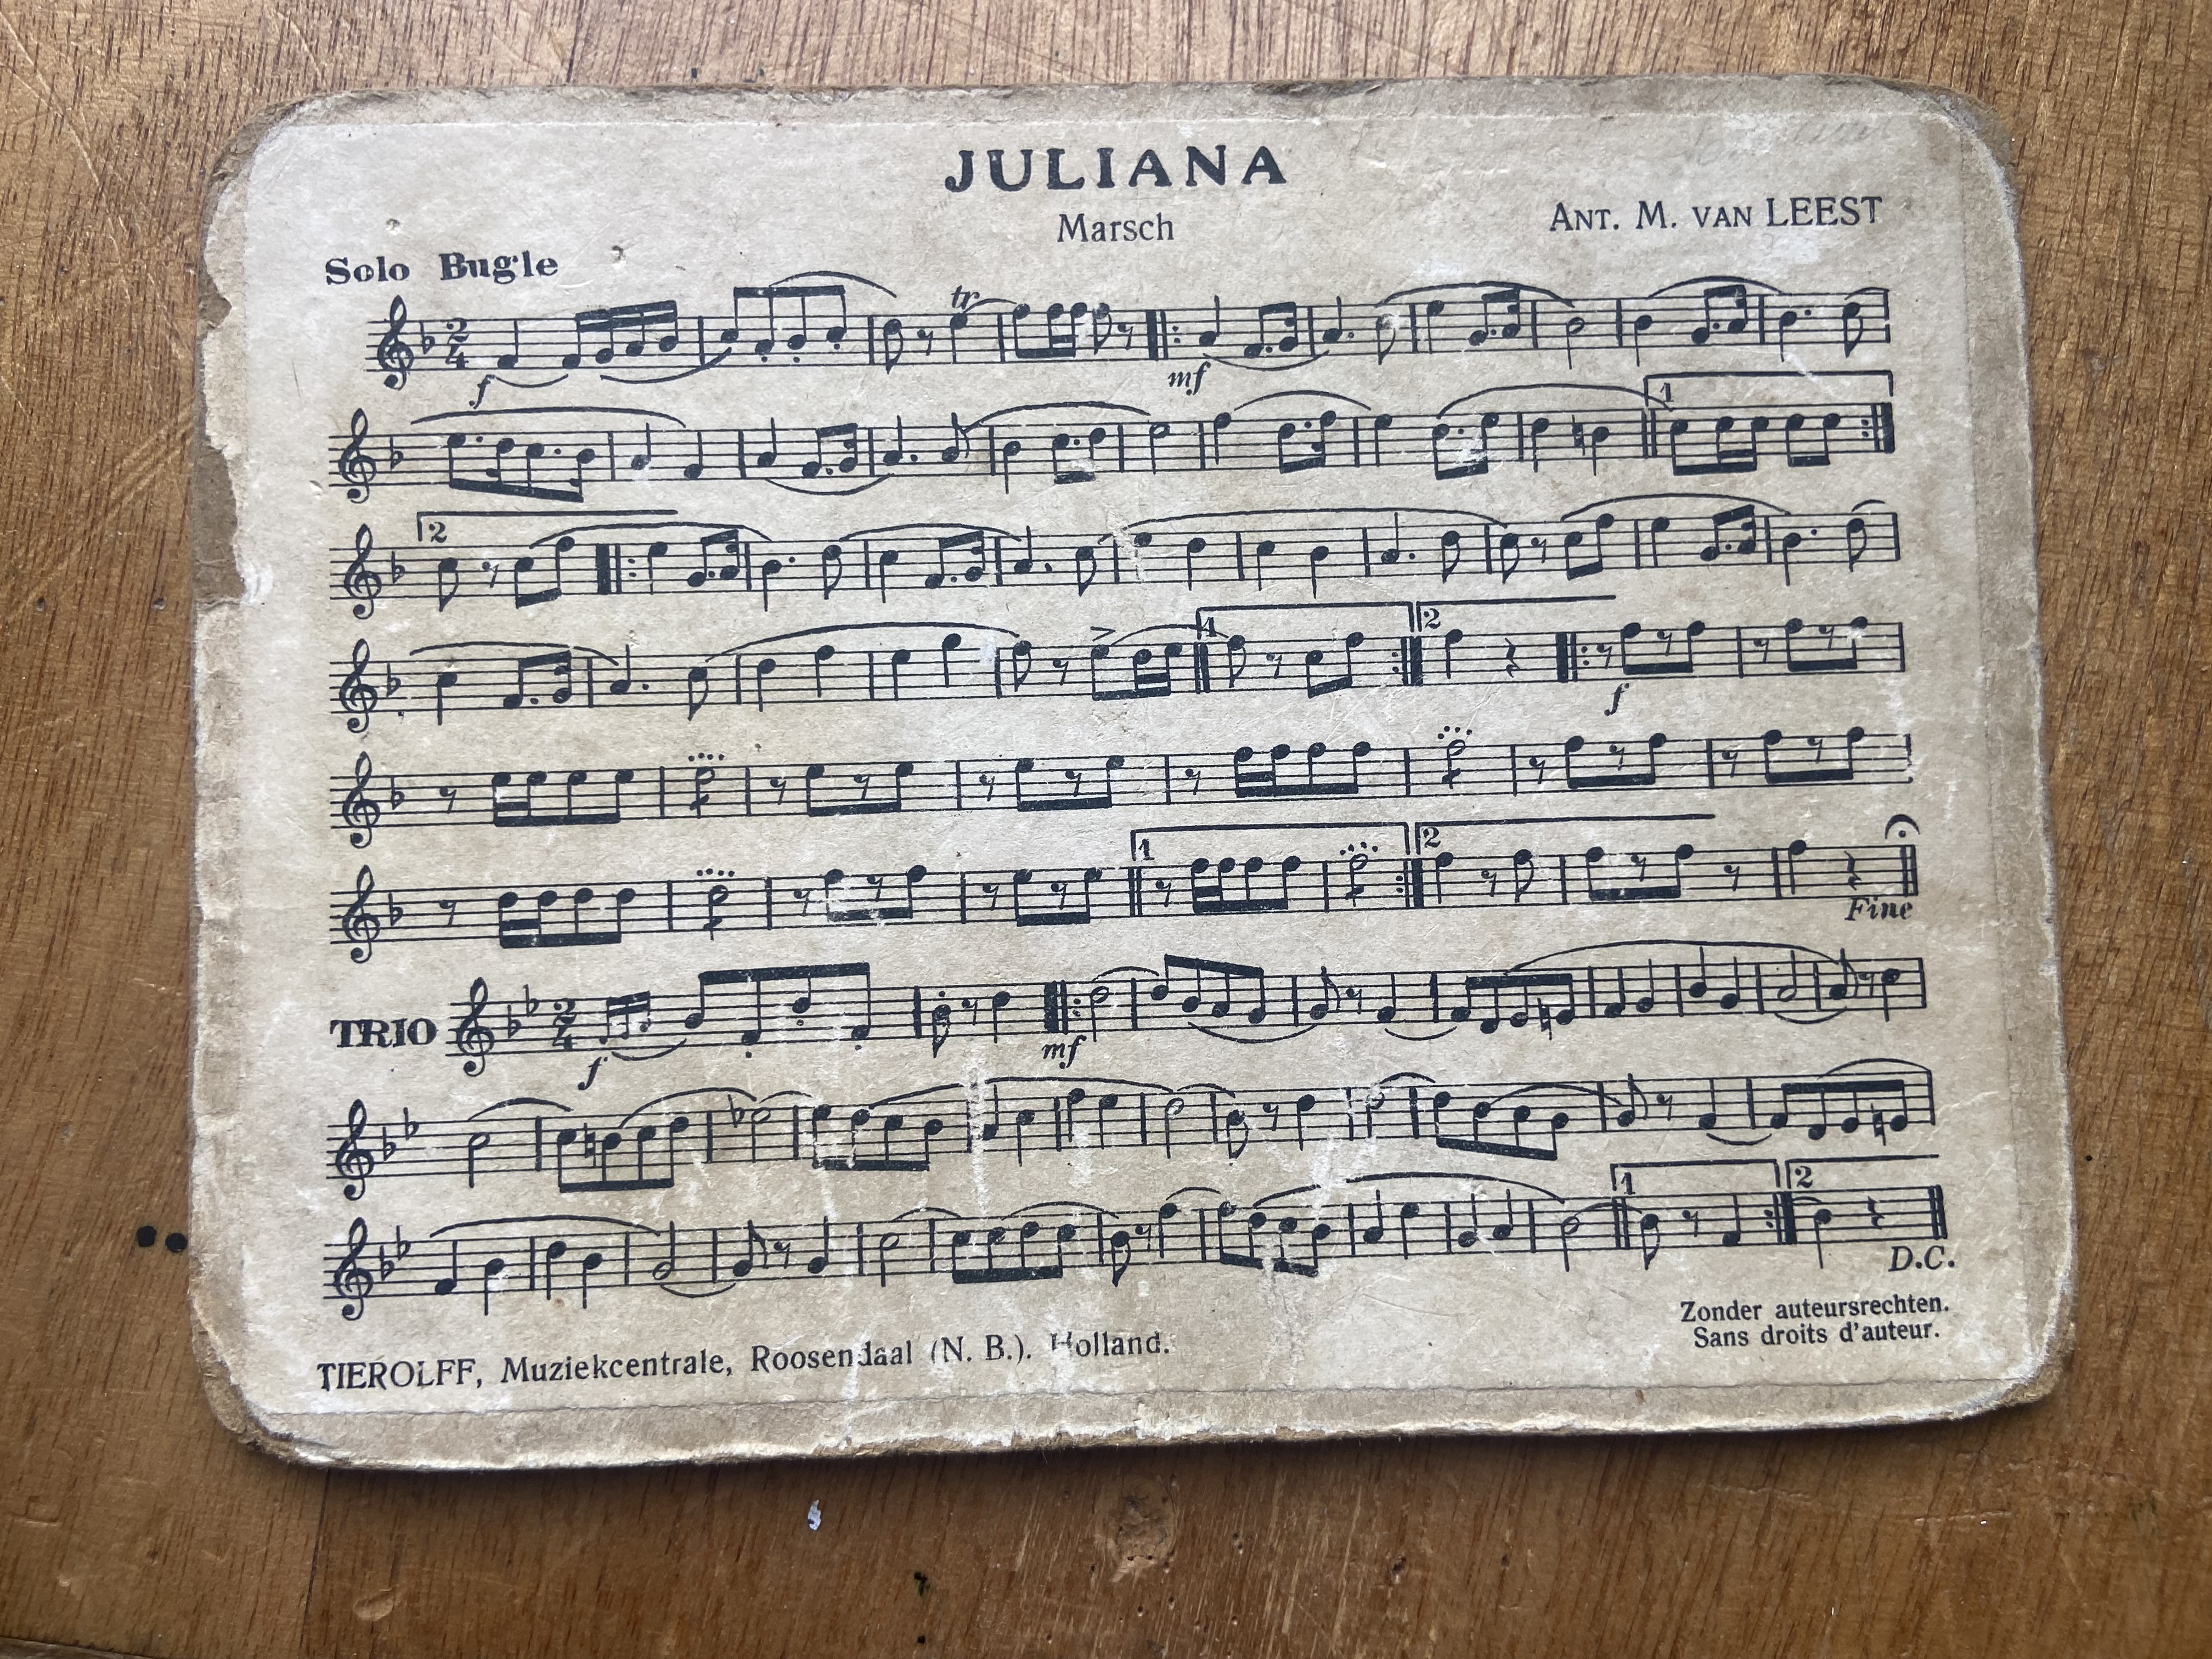 JULIANA
Marsch
ANT. M. VAN LEEST
Solo Bugle
2
4
tr
f
mf
1
2
1
2
f
1
2
Fine
TRIO
2
4
f
mf
1
2
D.C.
Zonder auteursrechten.
Sans droits d'auteur.
TIEROLFF, Muziekcentrale, Roosendaal (N. B.). Holland.